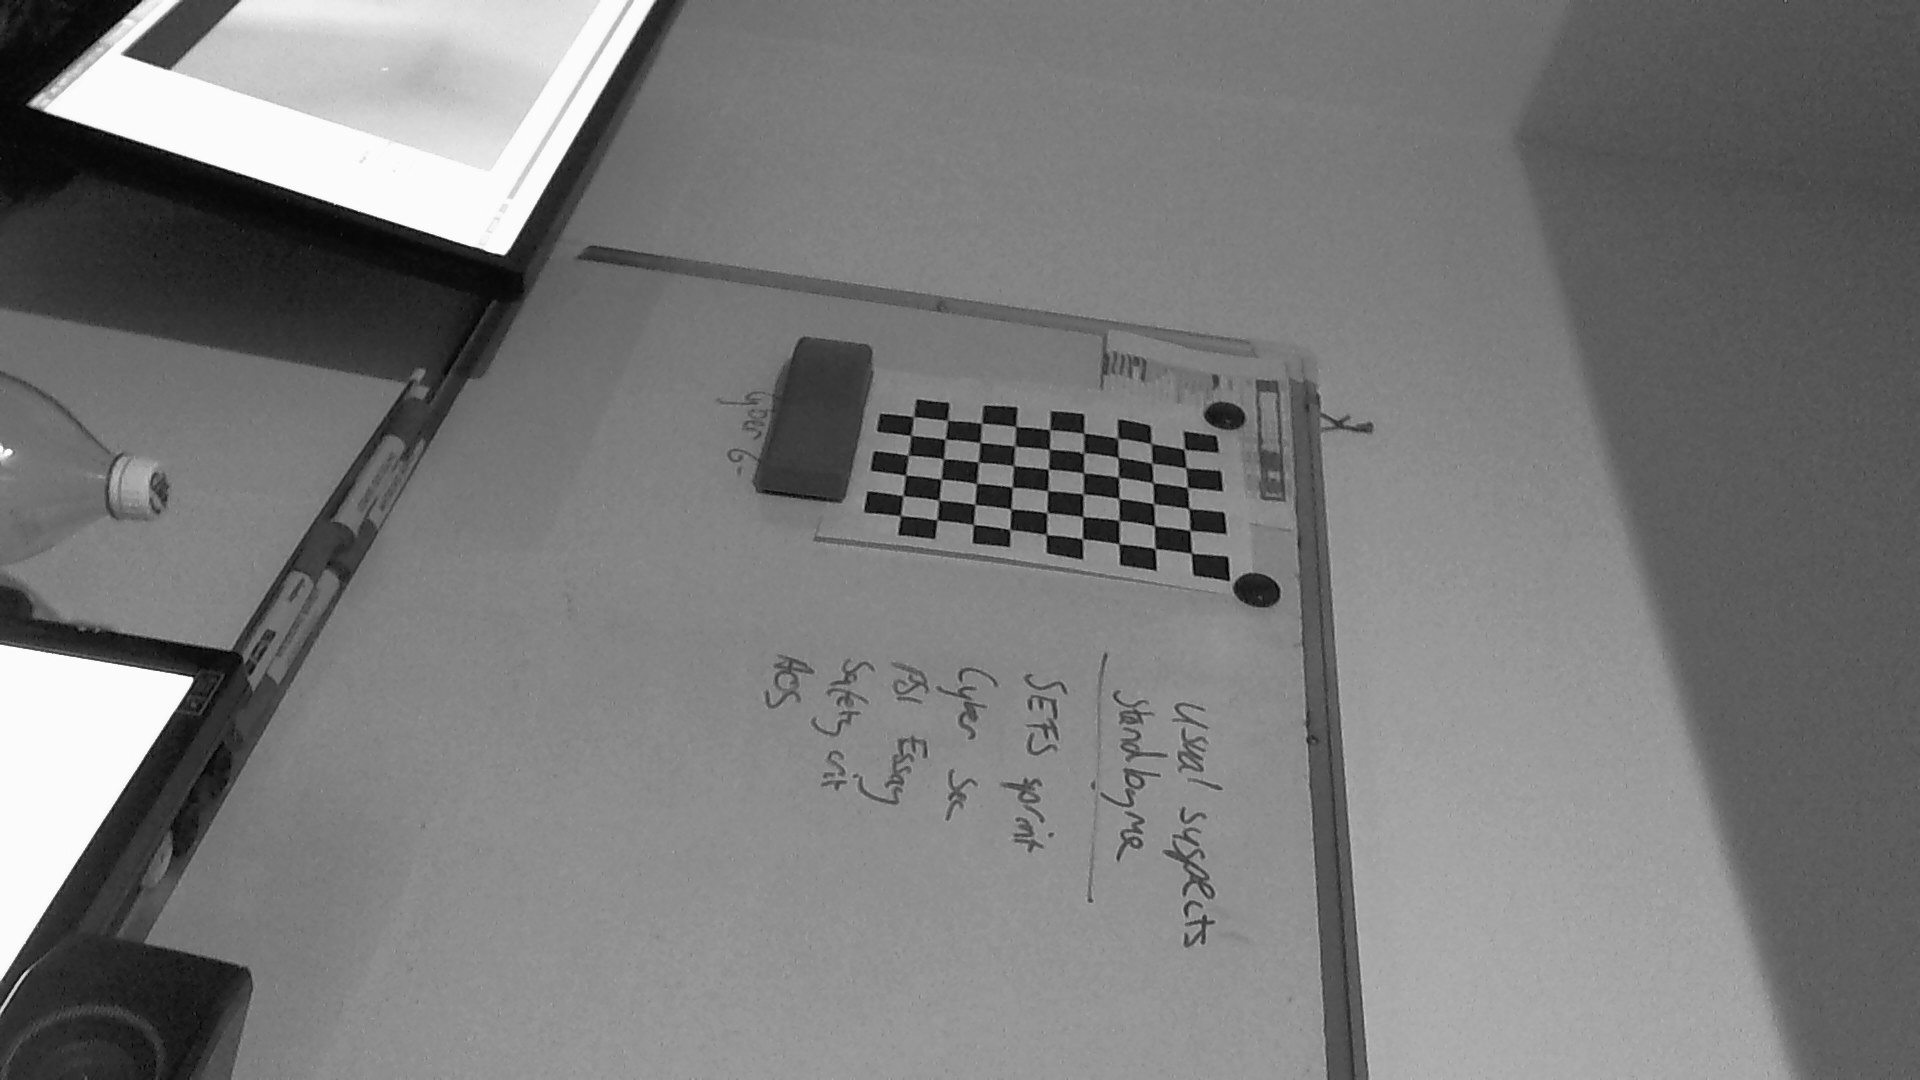 Usual suspects
Standbyme
SEFS sprint
Cyber Sec
PSI Essay
Safety crit
ACS
Cyber 6-